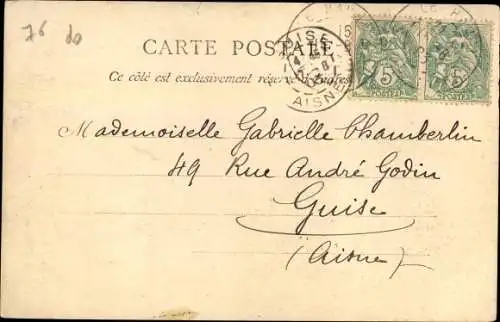 76 do
CARTE POSTALE
Ce côté est exclusivement réservé
GUISE
AISNE
5 5
POSTES POSTES
Mademoiselle Gabrielle Chamberlin
49 Rue André Godin
Guise
(Aisne)